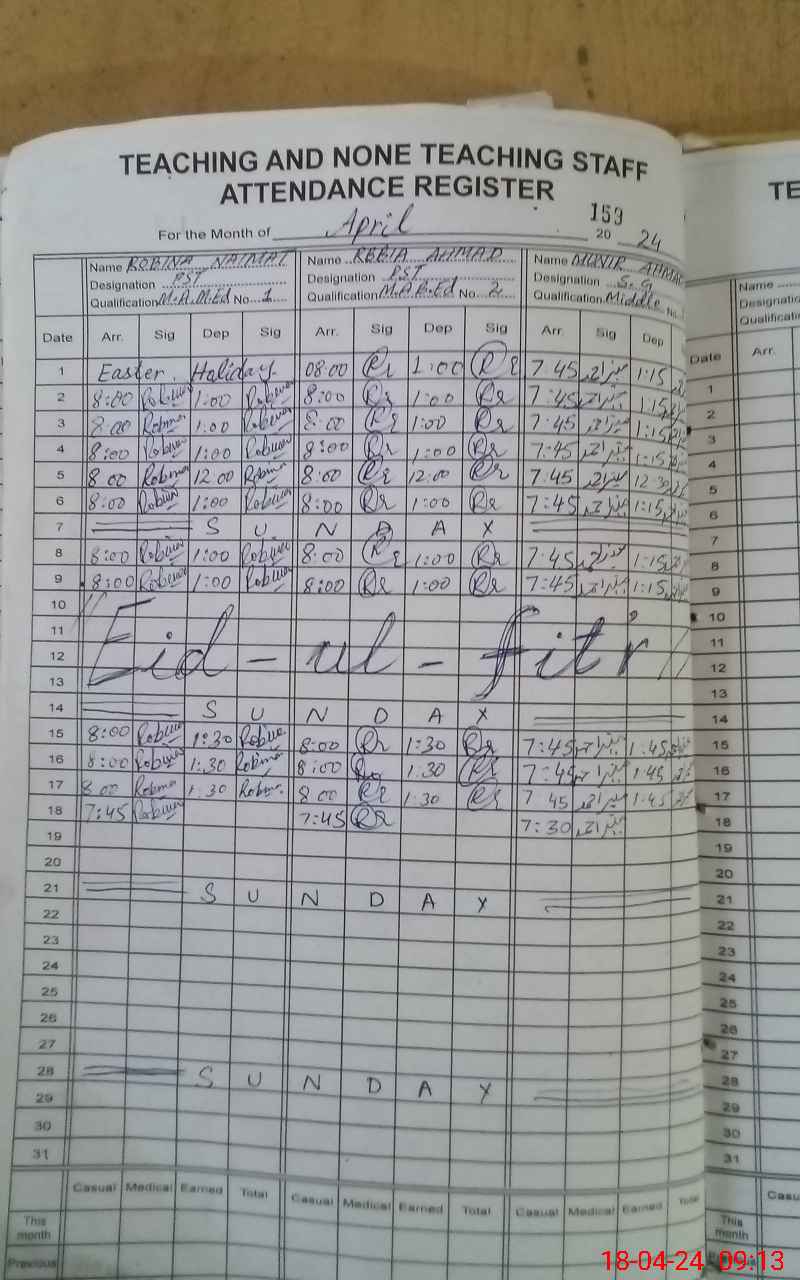 TEACHING AND NONE TEACHING STAFF TE
ATTENDANCE REGISTER
159
For the Month of April 20 24
Name ROBINA NAIMAT Name RBBIA AHMAD Name MUNIR AHMAD Name
Designation PST Designation PST Designation S.G
Qualification M.A.M.Ed No 1 Qualification M.A B.Ed No 2 Qualification Middle No
Date Arr. Sig Dep Sig Arr. Sig Dep Sig Arr. Sig Dep Date Arr.
1 Easter Haliday 08:00 Rr 1:00 Rr 7:45 1:15 1
2 8:00 Robina 1:00 Robina 8:00 Rr 1:00 Rr 7:45 1:15 2
3 8:00 Robina 1:00 Robina 8:00 Rr 1:00 Rr 7:45 1:15 3
4 8:00 Robina 1:00 Robina 8:00 Rr 1:00 Rr 7:45 1:15 4
5 8 00 Robina 12 00 Robina 8:00 Rr 12:00 Rr 7:45 12:30 5
6 8:00 Robina 1:00 Robina 8:00 Rr 1:00 Rr 7:45 1:15 6
7 S U N D A Y 7
8 8:00 Robina 1:00 Robina 8:00 Rr 1:00 Rr 7:45 1:15 8
9 8:00 Robina 1:00 Robina 8:00 Rr 1:00 Rr 7:45 1:15 9
10 10
11 Eid-ul-fitr 11
12 12
13 13
14 S U N D A Y 14
15 8:00 Robina 1:30 Robina 8:00 Rr 1:30 Rr 7:45 1:45 15
16 8:00 Robina 1:30 Robina 8:00 Rr 1:30 Rr 7:45 1:45 16
17 8 00 Robina 1:30 Robina 8 00 Rr 1:30 Rr 7 45 1:45 17
18 7:45 Robina 7:45 Rr 7:30 18
19 19
20 20
21 S U N D A Y 21
22 22
23 23
24 24
25 25
26 26
27 27
28 S U N D A Y 28
29 29
30 30
31 31
Casual Medical Earned Total Casual Medical Earned Total Casual Medical Earned Total Casu
This month This month
Previous
18-04-24 09:13